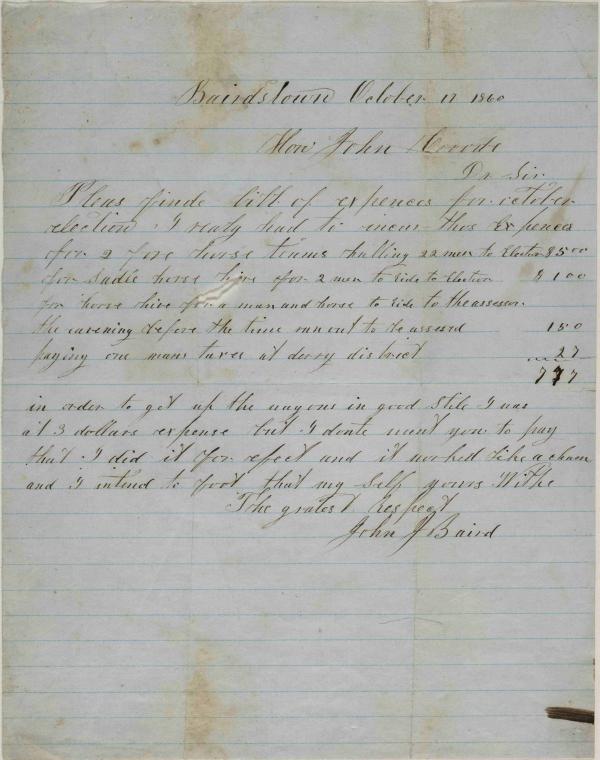 Bairdstown October 17 1860
Hon John Covode
Dr Sir
Pleas finde bill of expences for october
election I realy had to incur thos Expences
for 2 fore horse teams halling 22 men to Election $ 5 00
for Sadle horse hire for 2 men to Ride to Election $ 1 00
for horse hire for a man and horse to Ride to the assessor
the eavening before the time run out to be assesed 1 50
paying one mans taxes at derry district 27
7 77
in order to get up the wagons in good Stile I was
at 3 dollars expense but I donte want you to pay
that I did it for efect and it worked Like a charm
and I intend to foot that my Self yours Withe
The gratest Respect
John J Baird